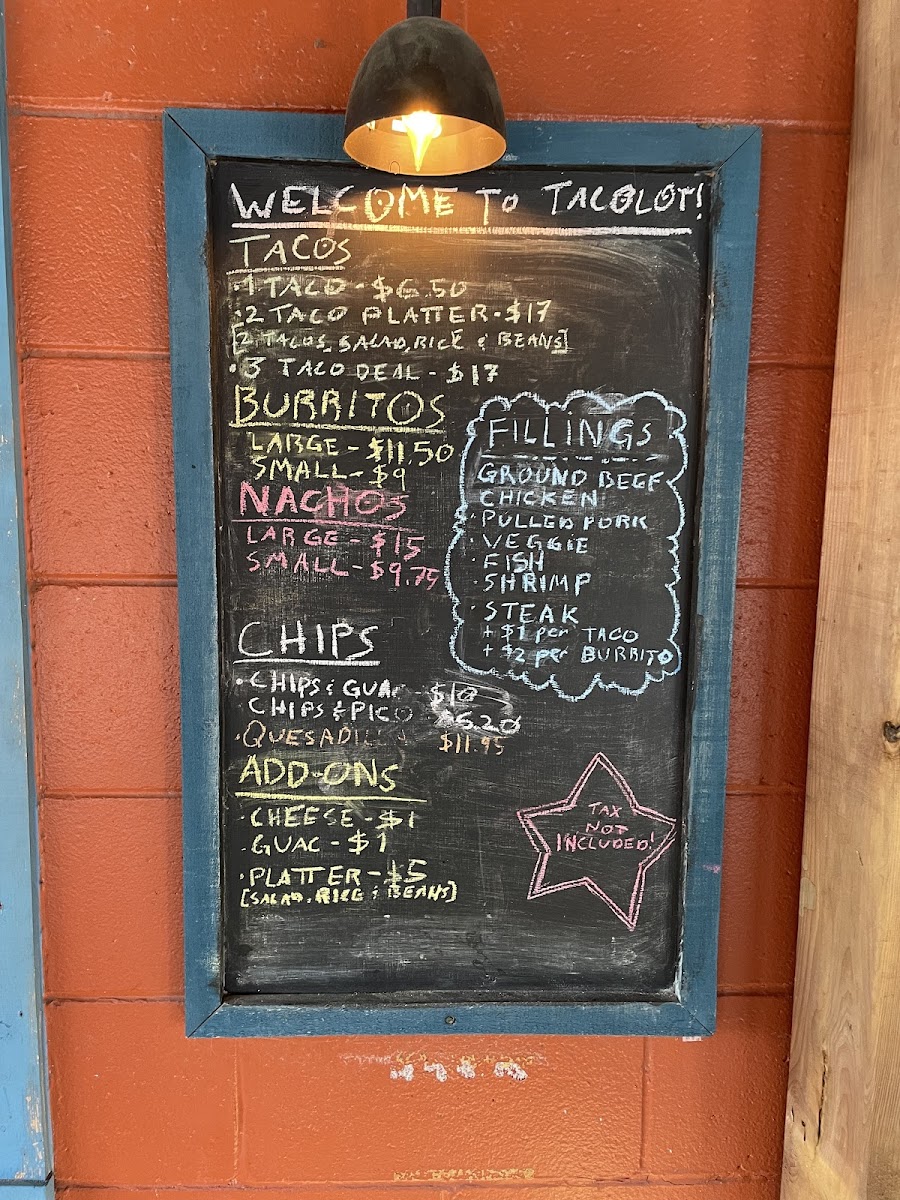 WELCOME TO TACOLOT!
TACOS
· 1 TACO - $6.50
· 2 TACO PLATTER - $17
[2 TACOS, SALAD, RICE & BEANS]
· 3 TACO DEAL - $17
BURRITOS
LARGE - $11.50
SMALL - $9
NACHOS
LARGE - $15
SMALL - $9.75
CHIPS
· CHIPS & GUAC - $10
· CHIPS & PICO
· QUESADILLA $11.95
ADD-ONS
· CHEESE - $1
· GUAC - $1
· PLATTER - $5
[SALAD, RICE & BEANS]
FILLINGS
GROUND BEEF
CHICKEN
· PULLED PORK
· VEGGIE
· FISH
· SHRIMP
· STEAK
+ $1 per TACO
+ $2 per BURRITO
TAX
NOT
INCLUDED!